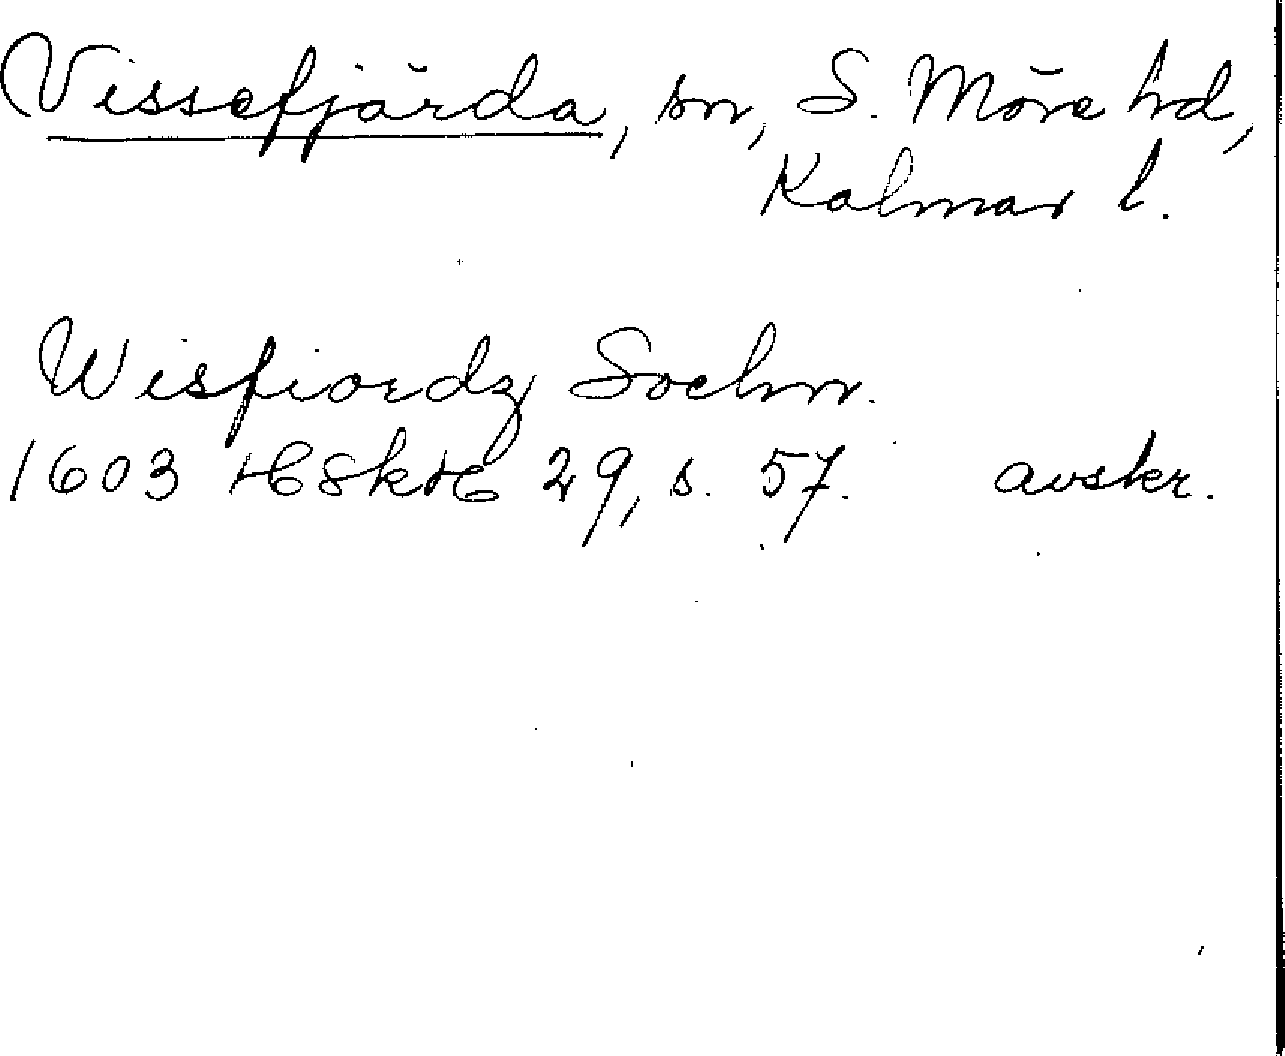 Vissefjärda, sn, S. Möre hd,
Kalmar l.
Wisfiordz Sochn.
1603 HSkrH 29, s. 57. avskr.